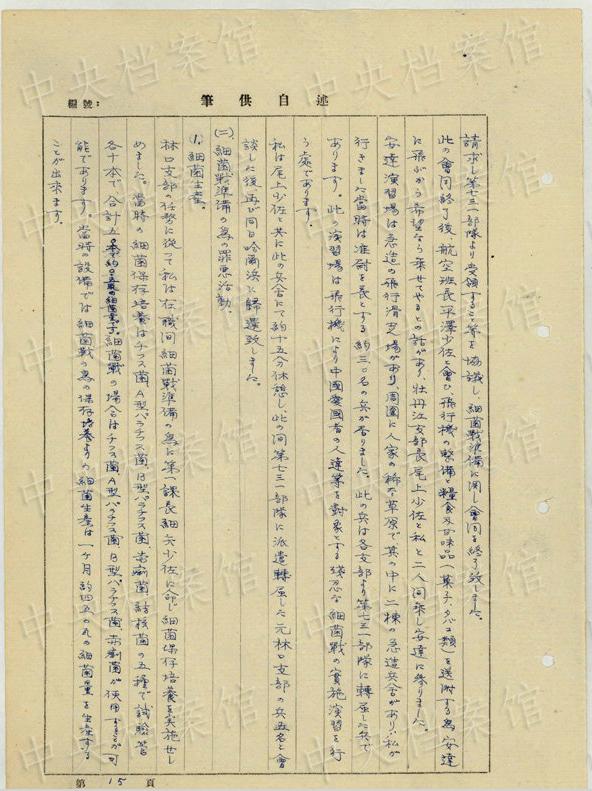 編號:
筆供自述
請求し第七三一部隊より受領すること等を協議し、細菌戰準備に関し會同を終了致しました。
此の會同終了後、航空班長平澤少佐と會ひ飛行機の整備と糧食及甘味品(菓子、タバコ類)を送附する為安達
に飛ぶから希望なら乘せてやるとの話があり、牡丹江支部長尾上少佐と私と二人同乘し安達に参りました。
安達演習場は急造の飛行滑走場があり、周圍に人家の稀な草原で其の中に二棟の急造兵舍があり、私が
行きました當時は准尉を長とする約三〇名の兵が居りました。此の兵は各支部より第七三一部隊に轉屬した兵で
あります。此の演習場は飛行機により中國愛國者の人達等を對象とする殘忍な細菌戰の實施演習を行
う処であります。
私は尾上少佐と共に此の兵舍にて約十五分休憩し、此の间第七三一部隊に派遣轉屬した元林口支部の兵五名と會
談した後、再び同日哈爾浜に歸還致しました。
(二)細菌戰準備の為の罪悪活動、
1. 細菌生産。
林口支部の任務に從って私は在職间細菌戰準備の為に第一課長細矢少佐に命じ細菌保存培養を実施せし
めました。當時の細菌保存培養はチフス菌、A型パラチフス菌、B型パラチフス菌、赤痢菌、結核菌の五種で試験管
各十本で、合計五〇本、細菌戰の場合はチフス菌、A型パラチフス菌、B型パラチフス菌、赤痢菌が使用することが可
能であります。當時の設備では細菌戰の為の保存培養よりの細菌生産は一ヶ月約四五〇瓦の細菌量を生産する
ことが出来ます。
第15頁
中央档案馆